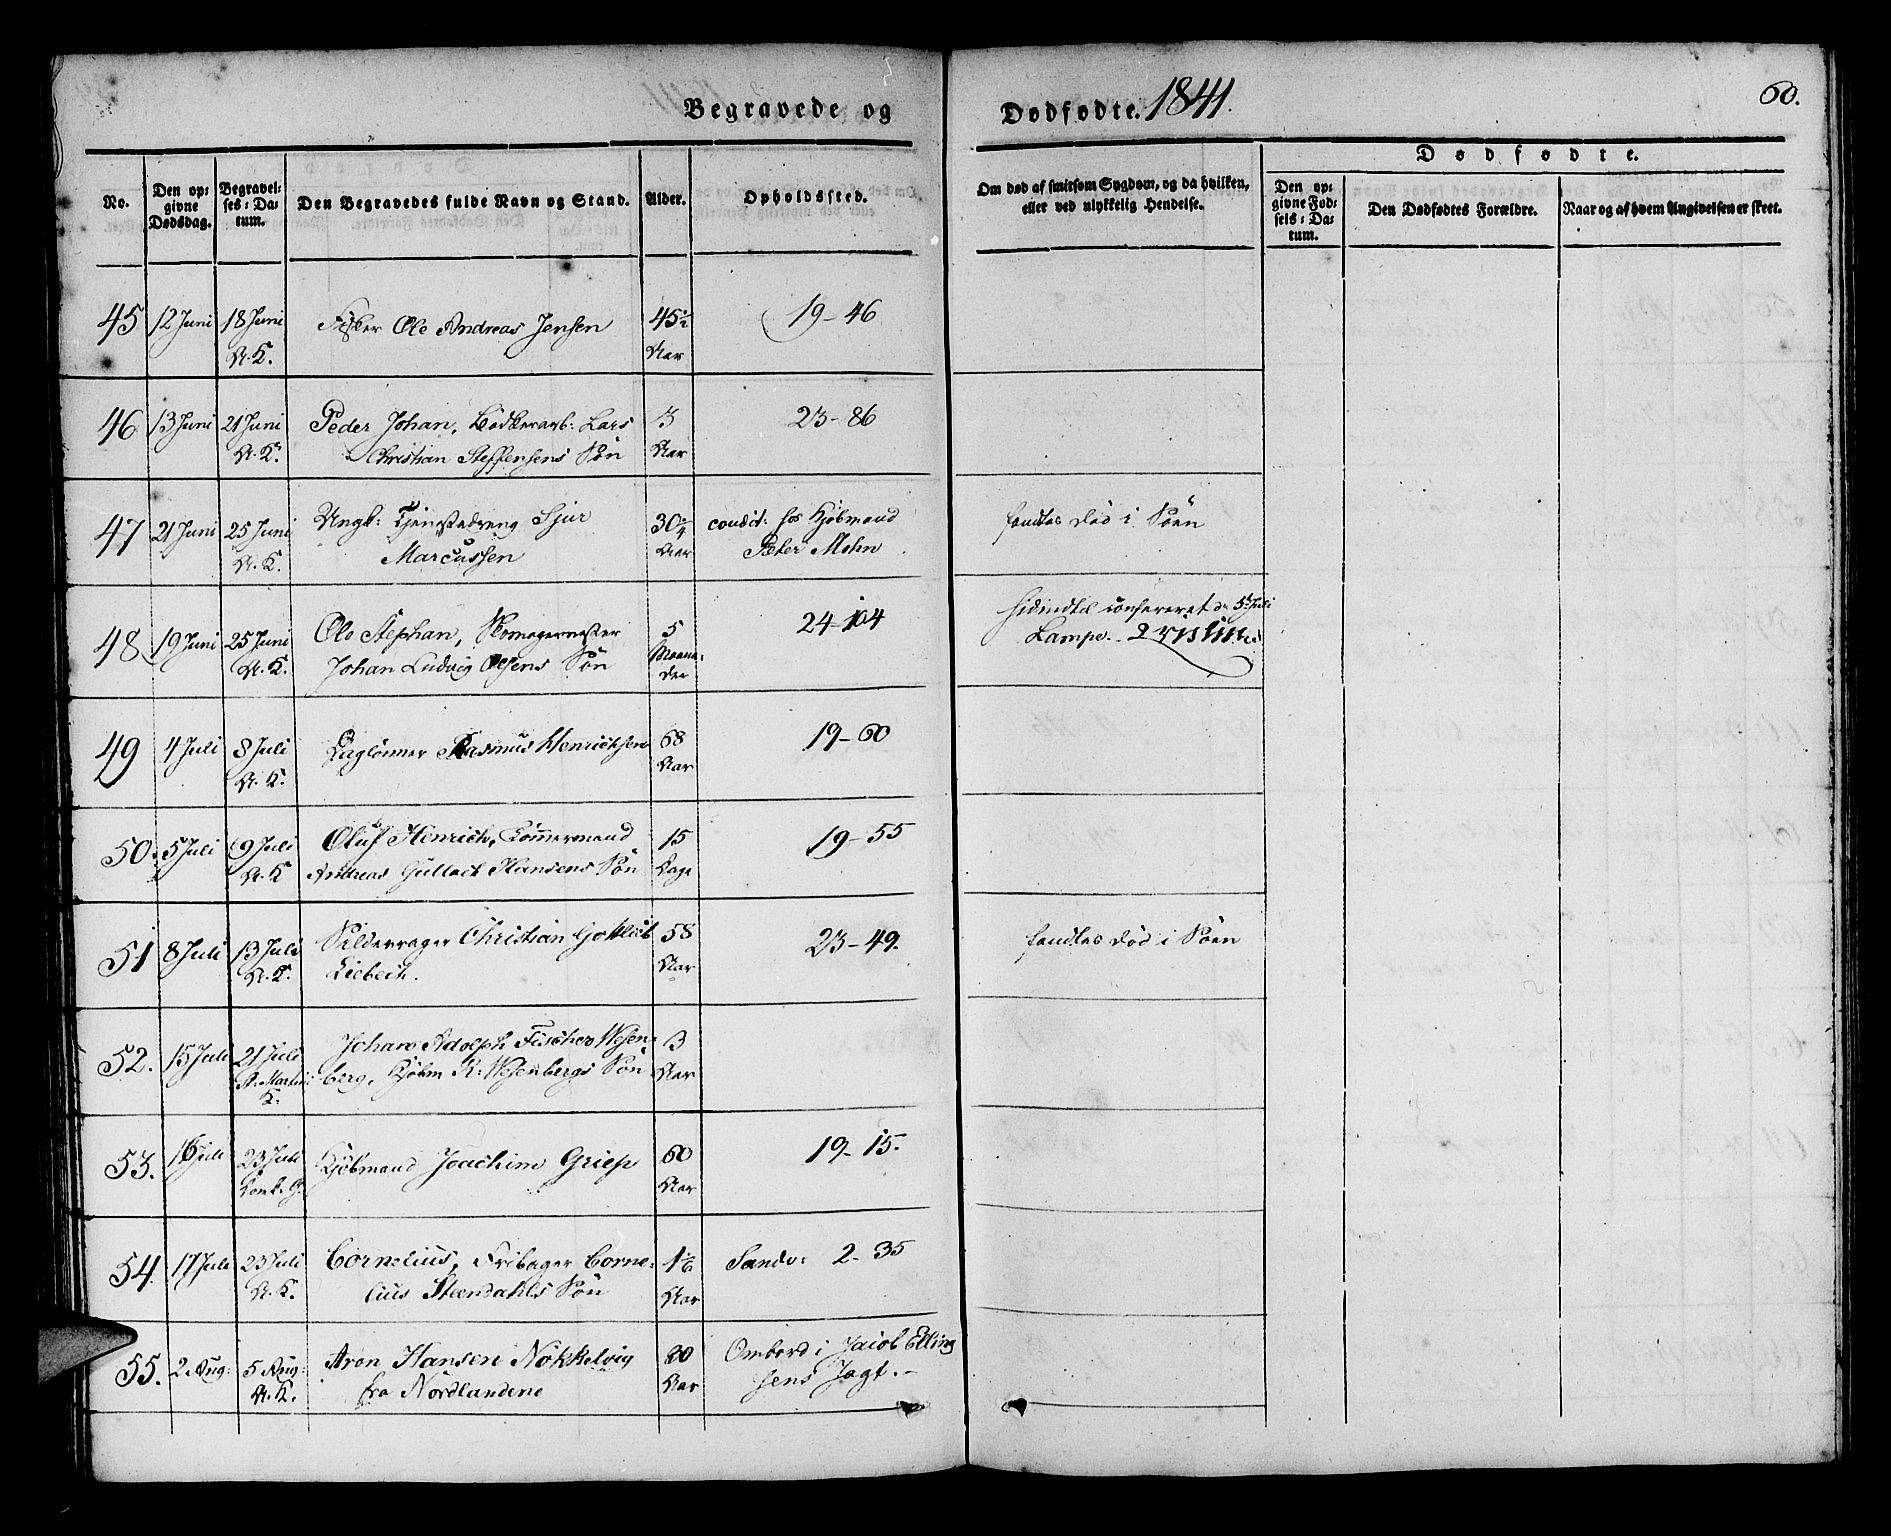 Begravede og Dødfødte. 1841. 60.
No. Den opgivne Dødsdag. Begravelses-Datum. Den Begravedes fulde Navn og Stand. Alder. Opholdssted. Om død af smitsom Sygdom, og da hvilken, eller ved ulykkelig Hendelse. Dødfødte.
Den opgivne Fødsels-Datum. Den Dødfødtes Forældre. Naar og af hvem Angivelsen er skeet.
45 12 Juni 18 Juni Fisker Ole Andreas Jensen 45½ 19-46
N. K. Aar
46 13 Juni 21 Juni Peder Johan, Bødkerarb: Lars 3 23-86
N. K. Christian Steffensens Søn Aar
47 21 Juni 25 Juni Ungk: Tjenestedreng Sjur 30¼ condit: hos Kjøbmand fandtes død i Søen
N. K. Marcussen Aar Peter Mohn
48 19 Juni 25 Juni Ole Stephan, Skomagermester 5 24-104 confereret d. 5 Juli
N. K. Johan Ludvig Olsens Søn Maaneder Lampe.
49 4 Juli 8 Juli Daglønner Rasmus Henrichsen 68 19-60
N. K. Aar
50. 5 Juli 9 Juli Oluf Henrich, Tømmermand 15 19-55
N. K Andreas Gullach Hansens Søn Dage
51 8 Juli 13 Juli Sildevrager Christian Gottlob 58 23-49. fandtes død i Søen
N. K. Liebech. Aar
52. 15 Juli 21 Juli Johan Adolph Fischer Wesen- 3
St. Martini berg, Kjøbm R. Wesenbergs Søn Aar
K.
53. 16 Juli 23 Juli Kjøbmand Joachim Griep 60 19-15.
Domk. G. Aar
54. 17 Juli 23 Juli Cornelius, Fribager Corne- 1⅙ Sandv: 2-35
N. K. lius Steendahls Søn Aar
55. 2 Aug: 5 Aug: Aron Hansen Nøkkelvig 20 Ombord i Jacob Elling
N. K. fra Nordlandene Aar sens Jagt.-